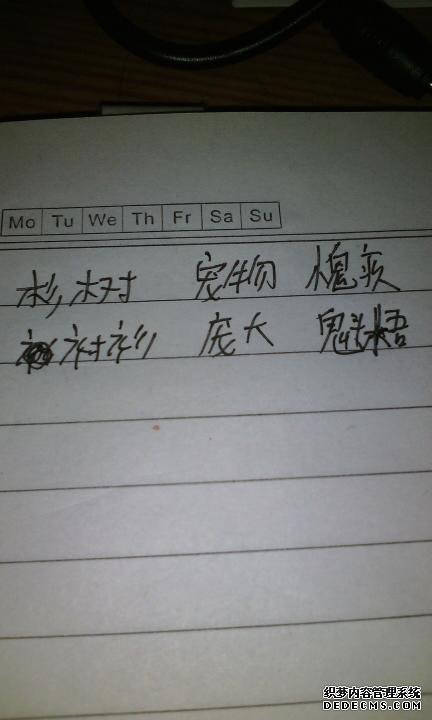 Mo Tu We Th Fr Sa Su
杉树 宠物 愧疚
衬衫 庞大 魁梧
织梦内容管理系统
DEDECMS.COM